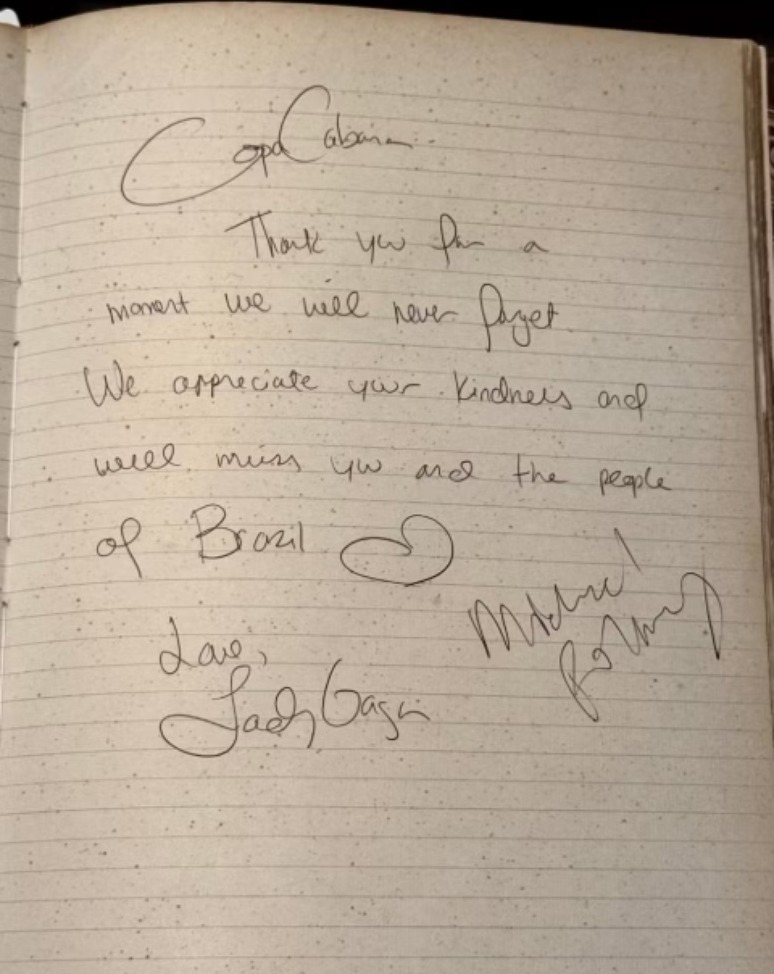 CopaCabana
Thank you for a
moment we will never forget
We appreciate your kindness and
will miss you and the people
of Brazil
Love,
Lady Gaga
Michael